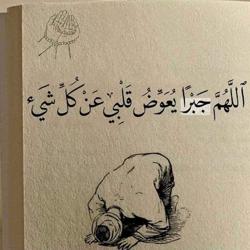 اَللَّهُمَّ جَبْرًا يُعَوِّضُ قَلْبِي عَنْ كُلِّ شَيْء